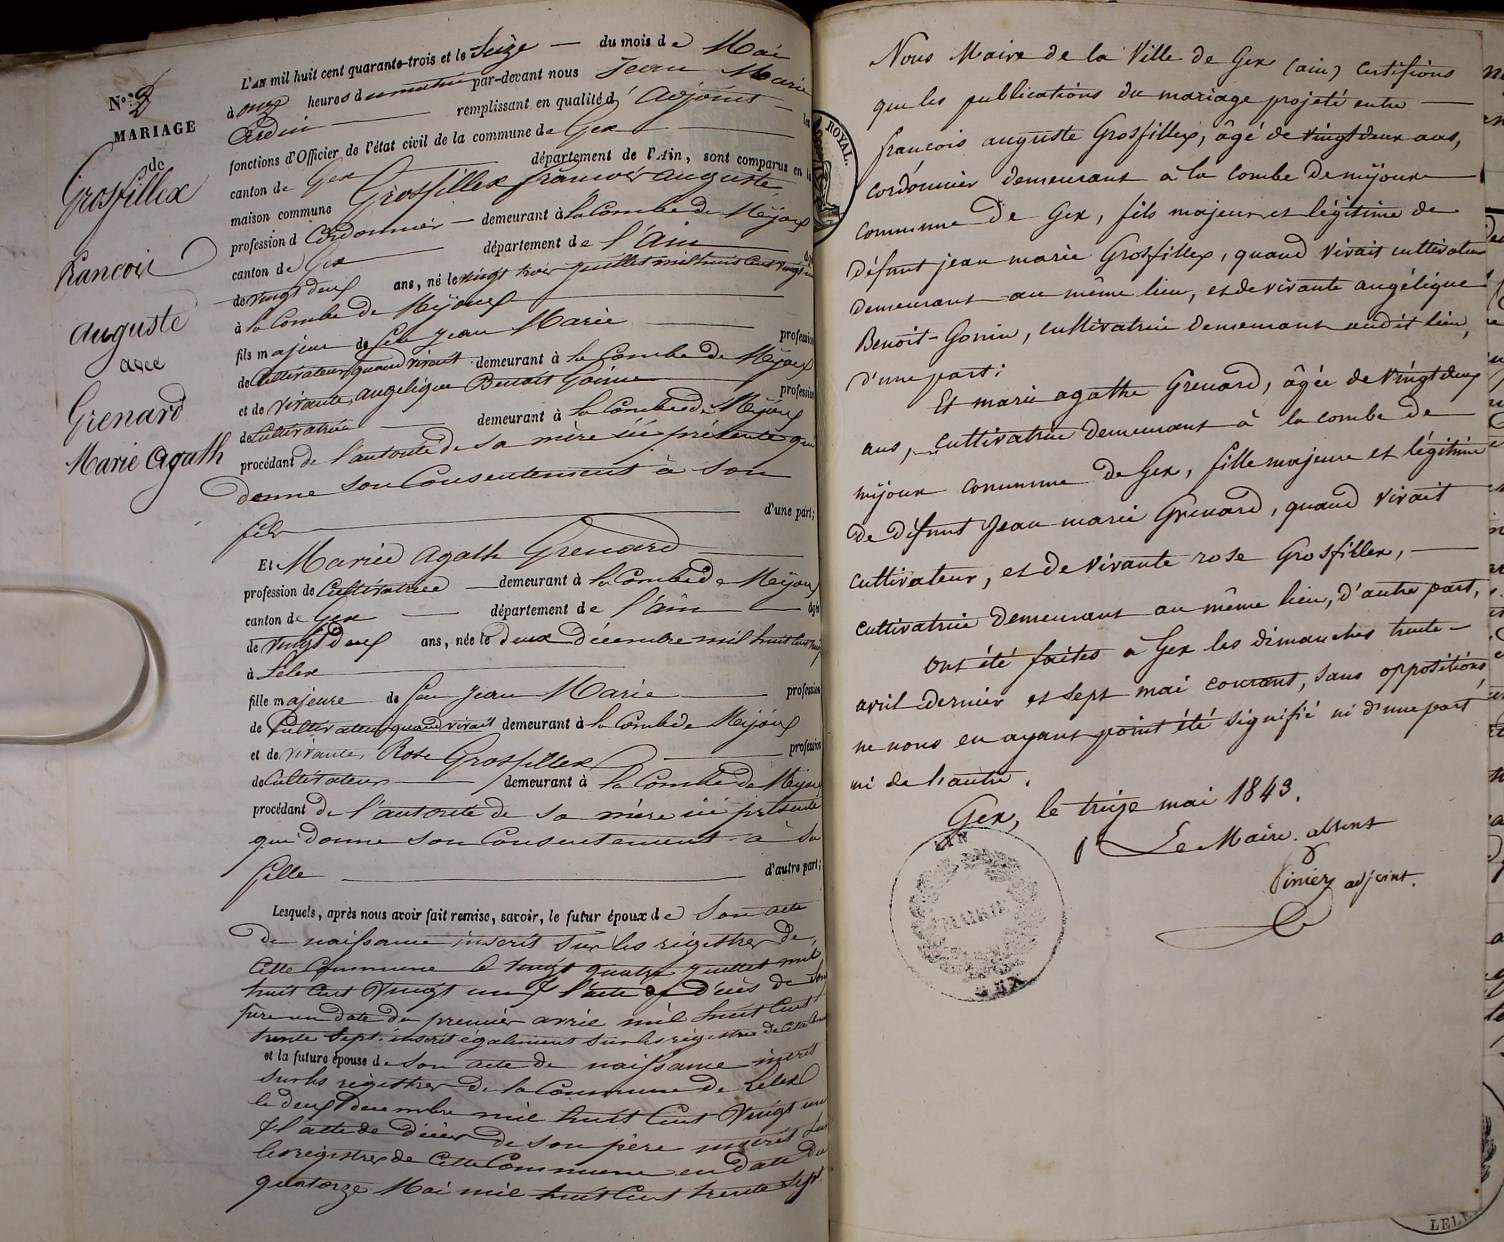 N.º 2
MARIAGE
de
Grosfillex
francois
auguste
avec
Grenard
Marie Agath
L'AN mil huit cent quarante-trois et le Seize du mois de Mai
à onze heures du matin par-devant nous Jean Marie
remplissant en qualité d'Adjoint les
fonctions d'Officier de l'état civil de la commune de Gex
canton de Gex département de l'Ain, sont comparus en la
maison commune Grosfillex francois auguste
profession de Cordonnier demeurant à la Combe de Mijoux
canton de Gex département de l'Ain âgé
de vingt deux ans, né le vingt trois juillet mil huit cent vingt un
à la Combe de Mijoux
fils majeur de feu Jean Marie profession
de Cultivateur, quand vivait demeurant à la Combe de Mijoux
et de vivante, angelique Benoit Gonin profession
de Cultivatrice demeurant à la Combe de Mijoux
procédant de l'autorité de sa mère ici présente qui
donne son Consentement à son
fils d'une part;
Et Marie Agath Grenard
profession de Cultivatrice demeurant à la Combe de Mijoux
canton de Gex département de l'ain âgée
de vingt deux ans, née le deux décembre mil huit cent vingt
à Lelex
fille majeure de feu Jean Marie profession
de Cultivateur quand vivait demeurant à la Combe de Mijoux
et de vivante, Rose Grosfillex profession
de Cultivateur demeurant à la Combe de Mijoux
procédant de l'autorité de sa mère ici présente
qui donne son Consentement à sa
fille d'autre part;
Lesquels, après nous avoir fait remise, savoir, le futur époux de Son acte
de naissance inscrit sur les régistres de
cette Commune le vingt quatre juillet mil
huit cent vingt un & l'acte de décès de son
père en date du premier avril mil huit cent
trente Sept, inscrit également sur les régistres de cette
et la future épouse de son acte de naissance inscrit
sur les régistres de la Commune de Lelex
le deux decembre mil huit cent vingt un
& l'acte de décès de son père inscrit sur
les registres de cette Commune en date du
quatorze Mai mil huit cent trente Sept
ROYAL.
Nous Maire de la Ville de Gex (ain) certifions
que les publications du mariage projeté entre
françois auguste Grosfillex, âgé de vingt deux ans,
cordonnier demeurant à la combe de mijoux
commune de Gex, fils majeur et légitime de
défunt jean marie Grosfillex, quand vivait cultivateur
demeurant au même lieu, et de vivante angélique
Benoit-Gonin, cultivatrice demeurant audit lieu,
d'une part;
Et marie agathe Grenard, âgée de vingt deux
ans, cultivatrice demeurant à la combe de
mijoux commune de Gex, fille majeure et légitime
de défunt Jean marie Grenard, quand vivait
cultivateur, et de vivante rose Grosfillex,
cultivatrice demeurant au même lieu, d'autre part,
Ont été faites à Gex les dimanches trente
avril dernier et sept mai courant, sans oppositions,
ne nous en ayant point été signifié ni d'une part
ni de l'autre.
Gex, le treize mai 1843.
Le Maire absent
adjoint.
AIN
MAIRIE
GEX
LELEX